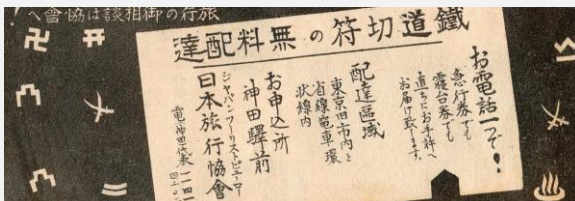 旅行の御相談は協會へ！
鐵道切符の無料配達
お電話一つで！
急行券でも
寢台券でも
直ちにお手許へ
お届け致します。
配達區域
東京旧市内と
省線電車環
状線内
お申込所
神田驛前
ジャパンツーリストビューロー
日本旅行協會
電神田代表